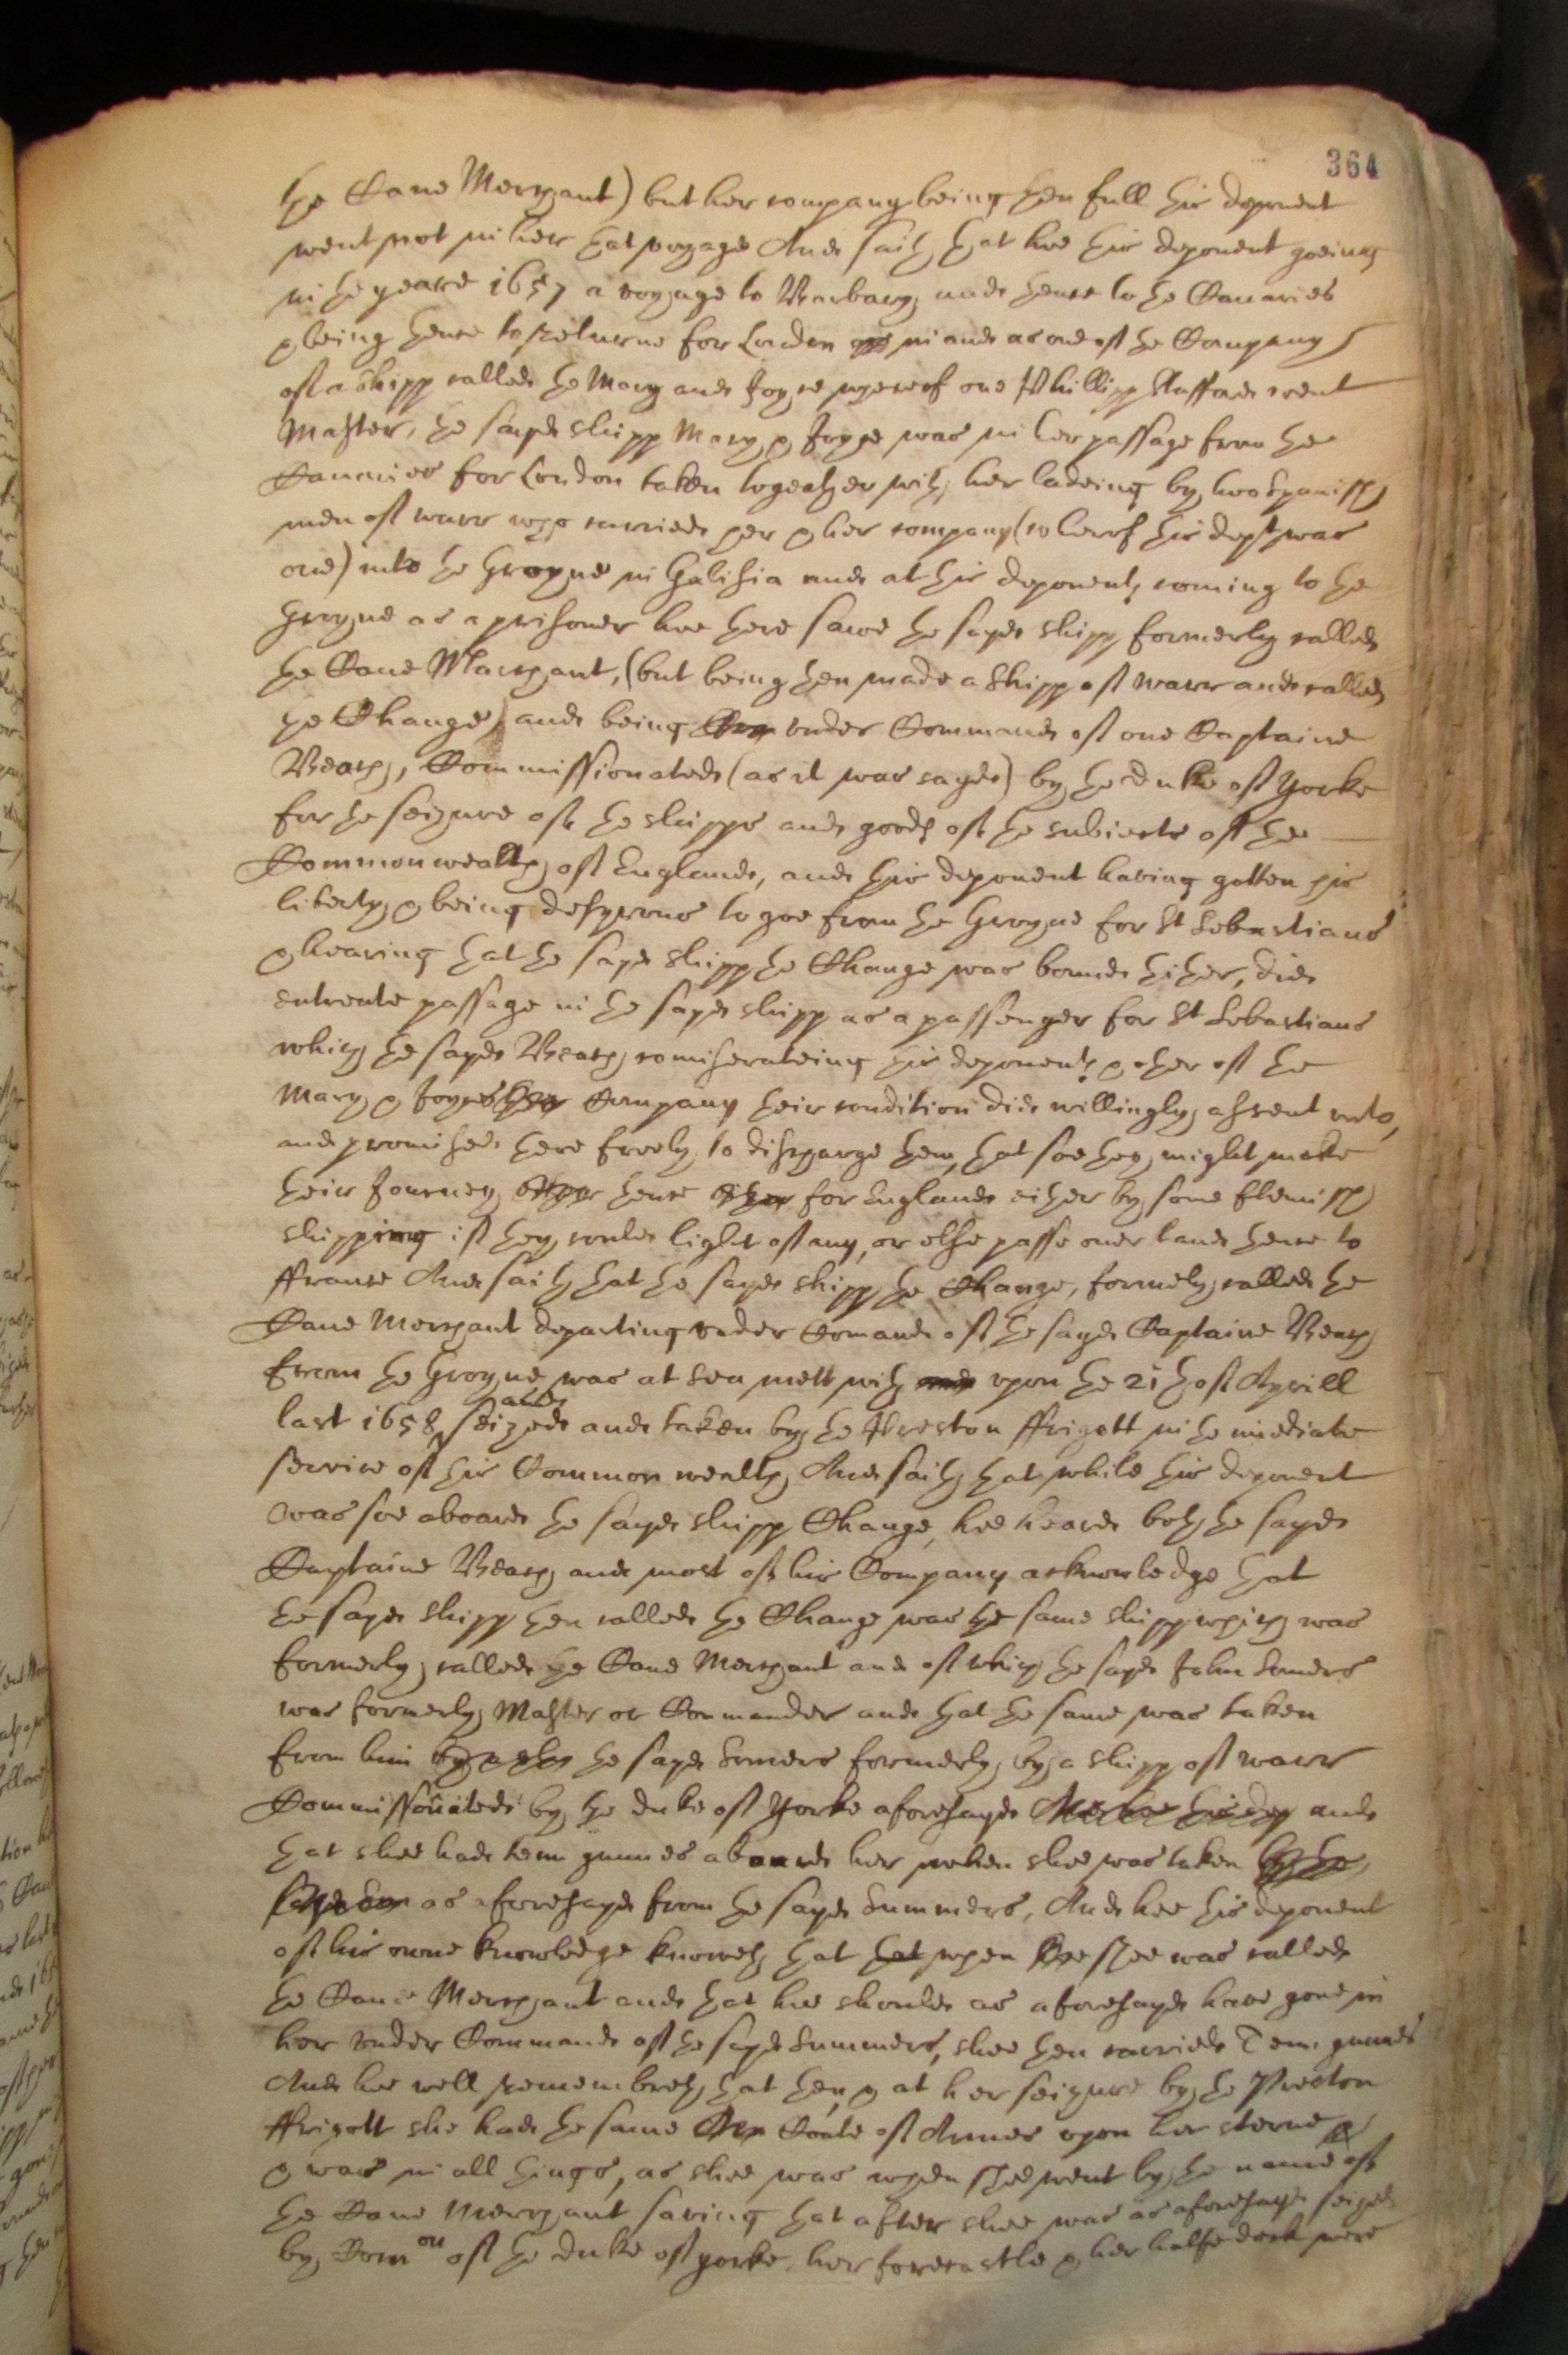 364
the Dane Merchant) but her company being then full this deponent
went not in her that voyage And saith that hee this deponent goeing
in the yeare 1657 a voyage to Barbary and thence to the Canaries
& being thence to returne for London in and as one of the Company
of a shipp called the Mary and Joyce whereof one Phillipp Stafford went
Master, the sayd shipp Mary & Joyce was in her passage from the
Canaries for London taken togeather with her ladeing by two Spanish
men of warr who carried her & her company (whereof this dept was
one) into the Groyne in Galisia and at this deponents coming to the
Groyne as a prisoner hee there sawe the sayd shipp formerly called
the Dane Marchant, (but being then made a shipp of warr and called
the Change) and being under Command of one Captaine
Beach, Commissionated (as it was sayd) by the Duke of Yorke
for the seizure of the shipps and goods of the subiects of the
Commonwealth of England, and this deponent having gotten his
liberty & being desyrous to goe from the Groyne for St Sebastians
& hearing that the sayd shipp the Change was bound thither, did
entreate passage in the sayd shipp as a passenger for St Sebastians
which the sayd Beach comiserateing this deponents & other of the
Mary & Joyces Company their condition did willingly assent unto,
and promised there freely to discharge them, that soe they might make
their Journey thence for England either by some fflemish
shipping if they could light of any, or else passe over land thence to
ffrance And saith that the sayd shipp the Change, formerly called the
Dane Merchant departing under Comand of the sayd Captaine Beach
from the Groyne was at sea mett with upon the 21th of Aprill
last 1658 and seized and taken by the Preston ffrigott in the imediate
service of this Common wealth, And saith that while this deponent
was soe aboard the sayd shipp Change, hee heard both the sayd
Captaine Beach and most of his Company acknowledge that
the sayd shipp then called the Change was the same shipp which was
formerly called the Dane Merchant and of which the sayd John Somers
was formerly Master or Commander and that the same was taken
from him by a shi the sayd Somers formerly by a shipp of warr
Commissionated by the duke of Yorke aforesayd And hee this dep and
that shee had tenn gunnes aboard her when shee was taken by the
sayd Som as aforesayd from the sayd Summers, And hee this deponent
of his owne knowledge knoweth that that when shee was called
the Dane Merchant and that hee should as aforesayd have gone in
her under Command of the sayd Summers, shee then carried Tenn gunnes
And hee well remembreth that then & at her seizure by the Preston
ffrigott she had the same Coate of Armes upon her sterne
& was in all things, as shee was when shee went by the name of
the Dane Merchant saving that after shee was as aforesayd seized
by Comon of the Duke of yorke, her forecastle & her halfe deck were